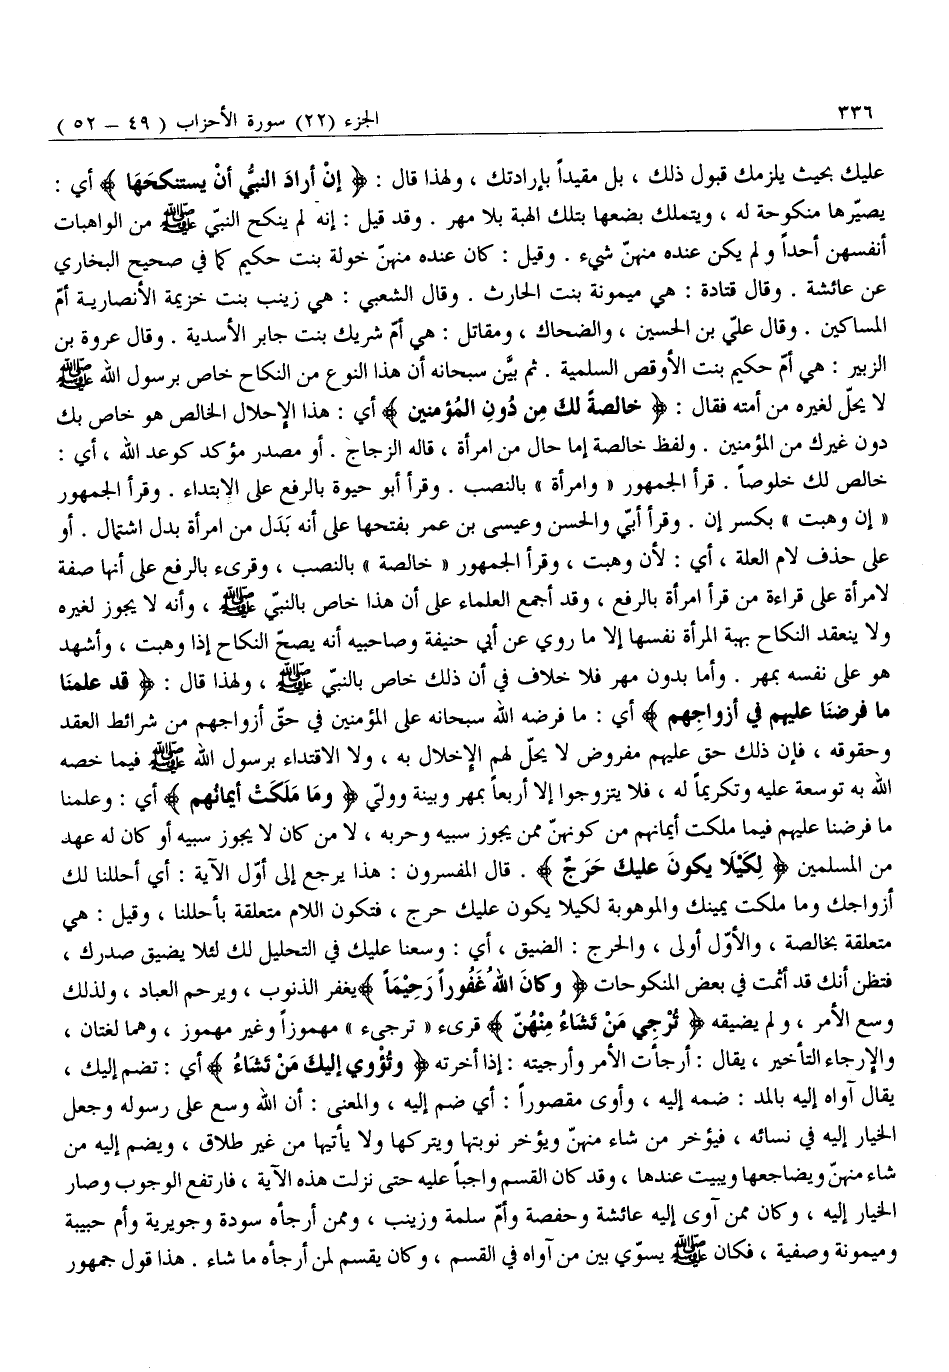 ٣٣٦
الجزء (٢٢) سورة الأحزاب ( ٤٩ – ٥٢ )
عليك بحيث يلزمك قبول ذلك ، بل مقيداً بإرادتك ، ولهذا قال : ﴿ إنْ أرادَ النبيُّ أنْ يستنكحَهَا ﴾ أي :
يصيّرها منكوحة له ، ويتملك بضعها بتلك الهبة بلا مهر . وقد قيل : إنه لم ينكح النبيّ ﷺ من الواهبات
أنفسهن أحداً ولم يكن عنده منهنّ شيء . وقيل : كان عنده منهنّ خولة بنت حكيم كما في صحيح البخاري
عن عائشة . وقال قتادة : هي ميمونة بنت الحارث . وقال الشعبي : هي زينب بنت خزيمة الأنصارية أمّ
المساكين . وقال عليّ بن الحسين ، والضحاك ، ومقاتل : هي أمّ شريك بنت جابر الأسدية . وقال عروة بن
الزبير : هي أمّ حكيم بنت الأوقص السلمية . ثم بيَّن سبحانه أن هذا النوع من النكاح خاص برسول الله ﷺ
لا يحلّ لغيره من أمته فقال : ﴿ خالصةً لكَ مِن دُونِ المُؤمنين ﴾ أي : هذا الإحلال الخالص هو خاص بك
دون غيرك من المؤمنين . ولفظ خالصة إما حال من امرأة ، قاله الزجاج . أو مصدر مؤكد كوعد الله ، أي :
خالص لك خلوصاً . قرأ الجمهور « وامرأة » بالنصب . وقرأ أبو حيوة بالرفع على الابتداء . وقرأ الجمهور
« إن وهبت » بكسر إن . وقرأ أبيّ والحسن وعيسى بن عمر بفتحها على أنه بَدَل من امرأة بدل اشتمال . أو
على حذف لام العلة ، أي : لأن وهبت ، وقرأ الجمهور « خالصة » بالنصب ، وقرىء بالرفع على أنها صفة
لامرأة على قراءة من قرأ امرأة بالرفع ، وقد أجمع العلماء على أن هذا خاص بالنبيّ ﷺ ، وأنه لا يجوز لغيره
ولا ينعقد النكاح بهبة المرأة نفسها إلا ما روي عن أبي حنيفة وصاحبيه أنه يصحّ النكاح إذا وهبت ، وأشهد
هو على نفسه بمهر . وأما بدون مهر فلا خلاف في أن ذلك خاص بالنبيّ ﷺ ، ولهذا قال : ﴿ قد علمنَا
ما فرضنَا عليهم في أزواجِهم ﴾ أي : ما فرضه الله سبحانه على المؤمنين في حقّ أزواجهم من شرائط العقد
وحقوقه ، فإن ذلك حق عليهم مفروض لا يحلّ لهم الإخلال به ، ولا الاقتداء برسول الله ﷺ فيما خصه
الله به توسعة عليه وتكريماً له ، فلا يتزوجوا إلا أربعاً بمهر وبينة ووليّ ﴿ ومَا مَلَكَتْ أيمانُهم ﴾ أي : وعلمنا
ما فرضنا عليهم فيما ملكت أيمانهم من كونهنّ ممن يجوز سبيه وحربه ، لا من كان لا يجوز سبيه أو كان له عهد
من المسلمين ﴿ لِكَيْلَا يكونَ عليكَ حَرَجٌ ﴾ . قال المفسرون : هذا يرجع إلى أوّل الآية : أي أحللنا لك
أزواجك وما ملكت يمينك والموهوبة لكيلا يكون عليك حرج ، فتكون اللام متعلقة بأحللنا ، وقيل : هي
متعلقة بخالصة ، والأوّل أولى ، والحرج : الضيق ، أي : وسعنا عليك في التحليل لك لئلا يضيق صدرك ،
فتظن أنك قد أثمت في بعض المنكوحات ﴿ وكانَ اللهُ غَفُوراً رَحِيْمَاً ﴾ يغفر الذنوب ، ويرحم العباد ، ولذلك
وسع الأمر ، ولم يضيقه ﴿ تُرْجِي مَنْ تَشَاءُ مِنْهُنّ ﴾ قرىء « ترجىء » مهموزاً وغير مهموز ، وهما لغتان ،
والإرجاء التأخير ، يقال : أرجأت الأمر وأرجيته : إذا أخرته ﴿ وتُؤْوي إليكَ مَنْ تَشَاءُ ﴾ أي : تضم إليك ،
يقال آواه إليه بالمد : ضمه إليه ، وأوى مقصوراً : أي ضم إليه ، والمعنى : أن الله وسع على رسوله وجعل
الخيار إليه في نسائه ، فيؤخر من شاء منهنّ ويؤخر نوبتها ويتركها ولا يأتيها من غير طلاق ، ويضم إليه من
شاء منهنّ ويضاجعها ويبيت عندها ، وقد كان القسم واجباً عليه حتى نزلت هذه الآية ، فارتفع الوجوب وصار
الخيار إليه ، وكان ممن آوى إليه عائشة وحفصة وأمّ سلمة وزينب ، وممن أرجأه سودة وجويرية وأم حبيبة
وميمونة وصفية ، فكان ﷺ يسوّي بين من آواه في القسم ، وكان يقسم لمن أرجأه ما شاء . هذا قول جمهور